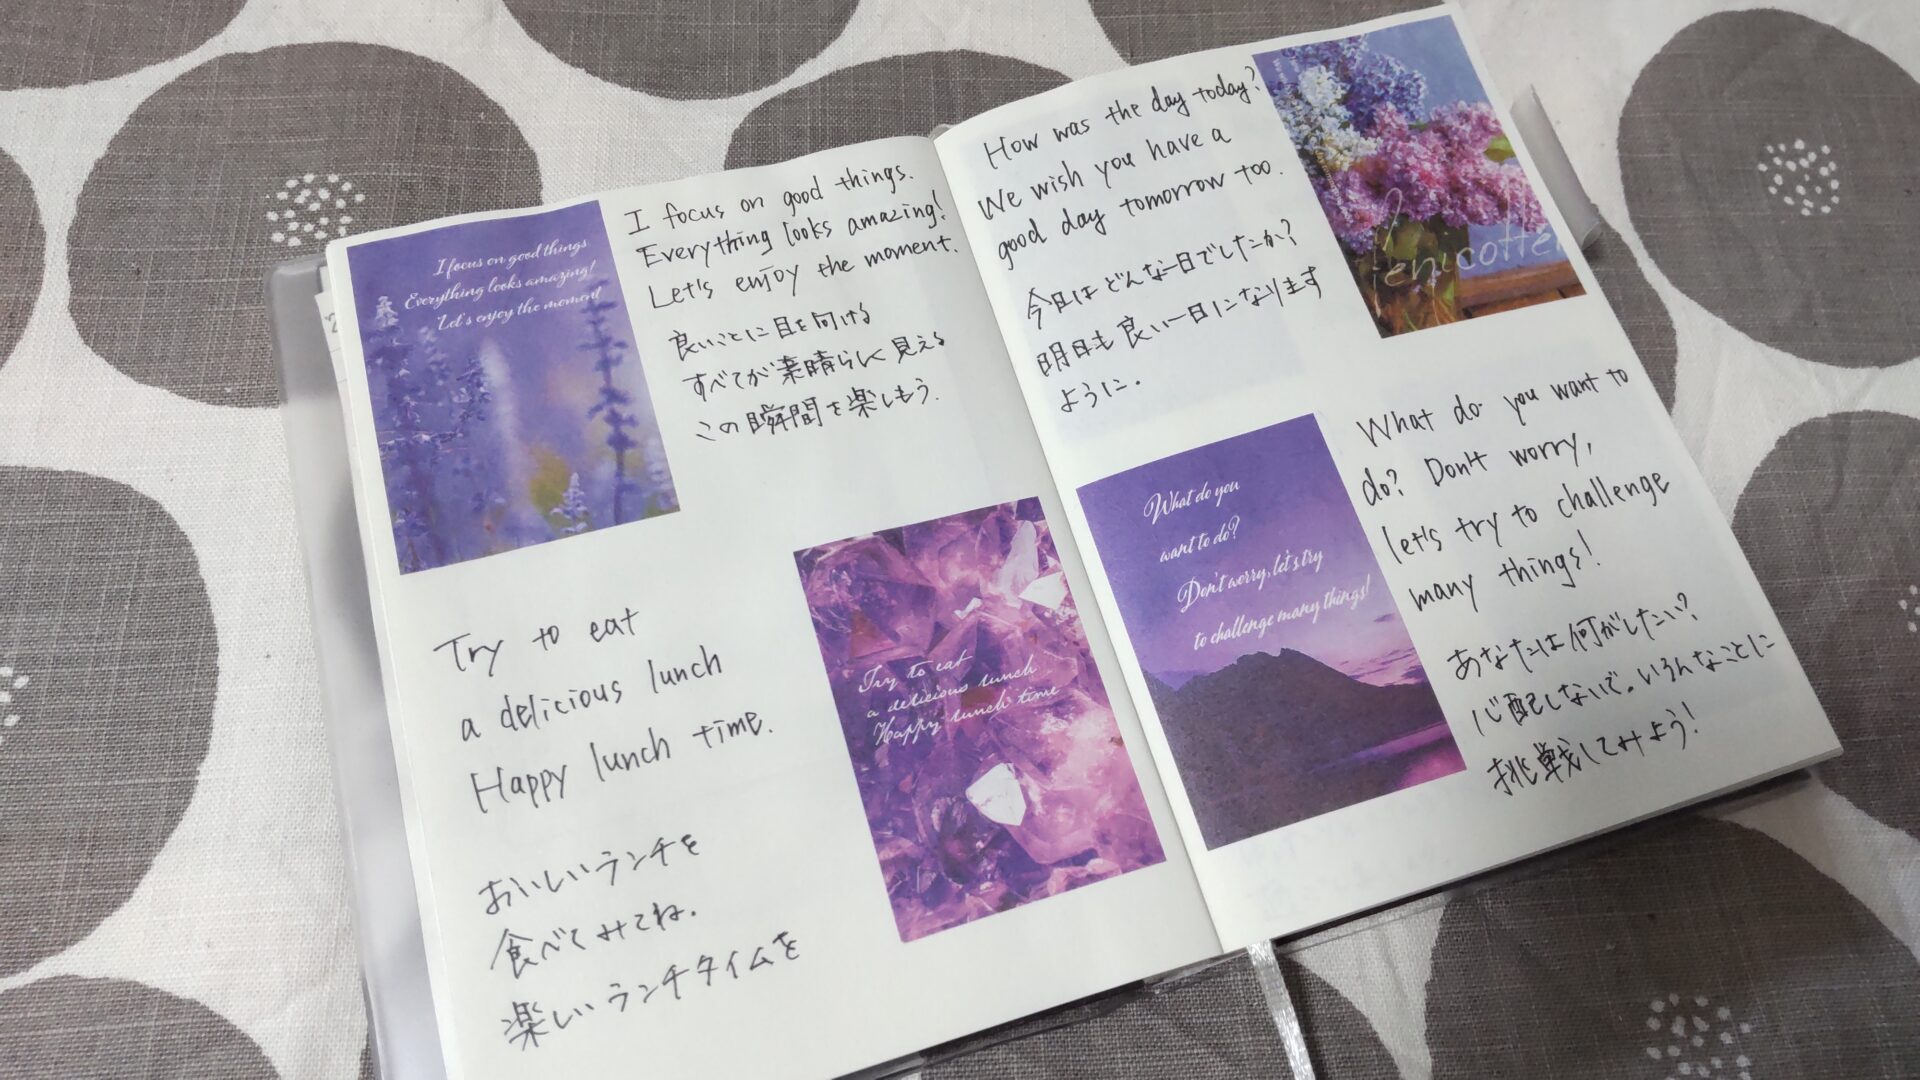 I focus on good things
Everything looks amazing!
Let's enjoy the moment
I focus on good things.
Everything looks amazing!
Let's enjoy the moment.
良いことに目を向ける
すべてが素晴らしく見える
この瞬間を楽しもう.
Try to eat
a delicious lunch
Happy lunch time.
おいしいランチを
食べてみてね.
楽しいランチタイムを
Try to eat
a delicious lunch
Happy lunch time
How was the day today?
We wish you have a
good day tomorrow too.
今日はどんな一日でしたか?
明日も良い一日になります
ように.
What do you
want to do?
Don't worry, let's try
to challenge many things!
What do you want to
do? Don't worry,
let's try to challenge
many things!
あなたは何がしたい?
心配しないで。いろんなことに
挑戦してみよう!